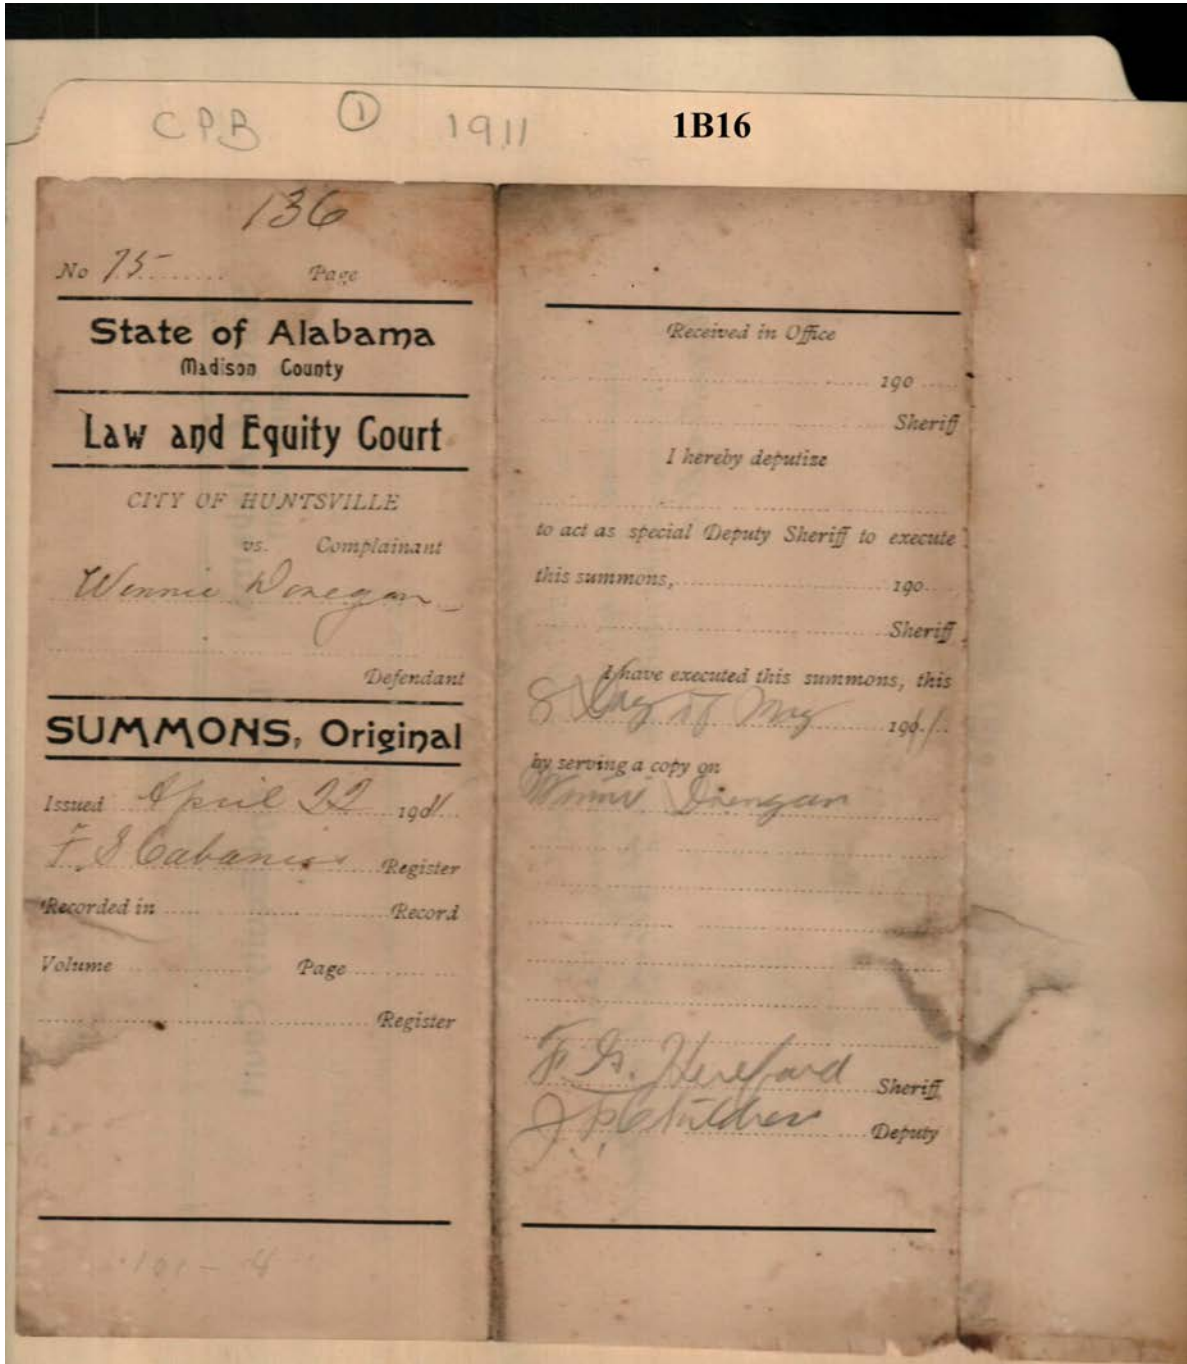 CPB ① 1911 1B16
136
No 75 Page
State of Alabama
Madison County
Law and Equity Court
CITY OF HUNTSVILLE
vs. Complainant
Winnie Donegan
Defendant
SUMMONS, Original
Issued April 22 1911
F. S Cabaniss Register
Recorded in Record
Volume Page
Register
Received in Office
190
Sheriff
I hereby deputize
to act as special Deputy Sheriff to execute
this summons, 190
Sheriff
I have executed this summons, this
8 day of May 1911
by serving a copy on
Winnie Donegan
F. G. Hereford Sheriff
J. P. Childress Deputy